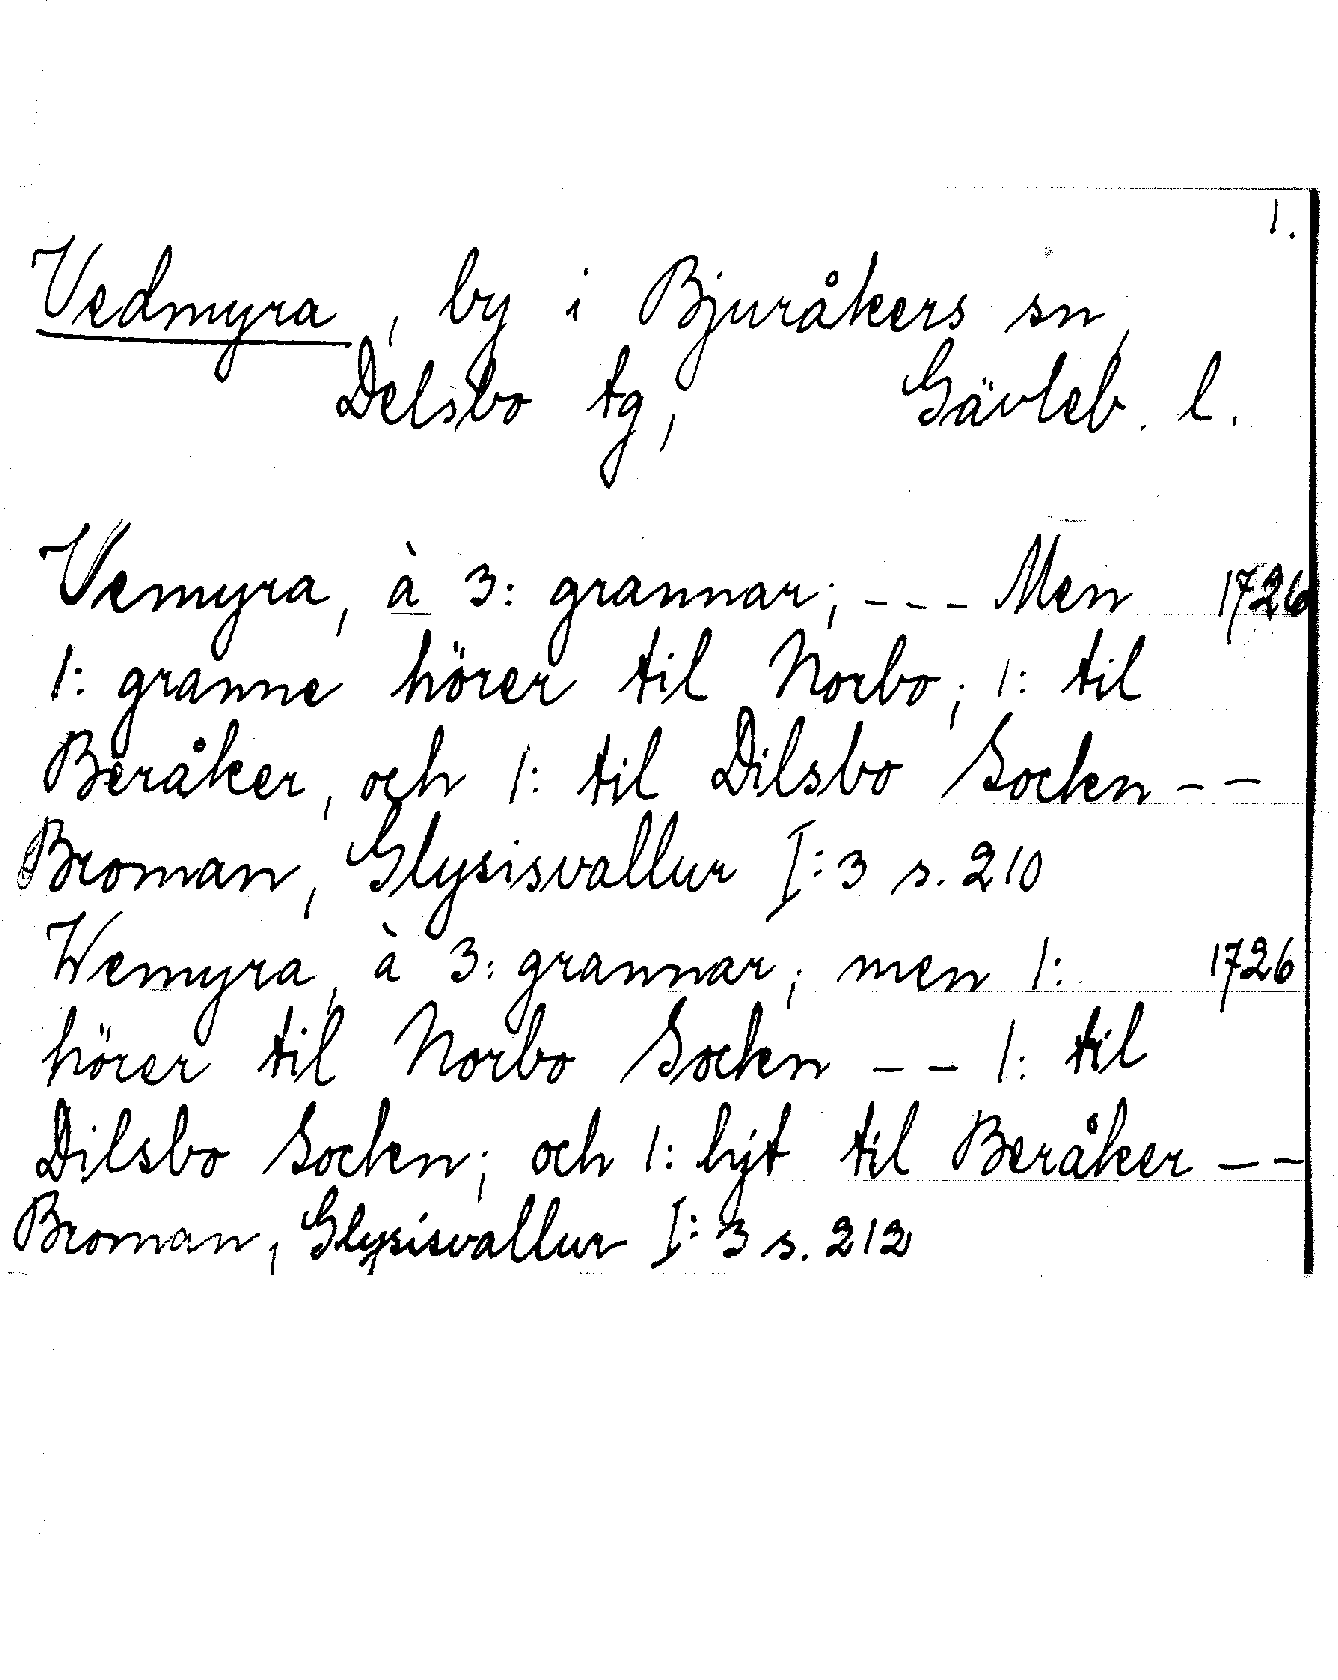 1.
Vedmyra, by i Bjuråkers sn,
Delsbo tg, Gävleb. l.
Vemyra, à 3: grannar; --- Men 1726
1: granne hörer til Norbo; 1: til
Beråker, och 1: til Dilsbo Sockn --
Broman, Glysisvallur I:3 s. 210
Wemyra, à 3: grannar; men 1: 1726
hörer til Norbo Sockn -- 1: til
Dilsbo Sockn; och 1: hjt til Beråker --
Broman, Glysisvallur I:3 s. 212